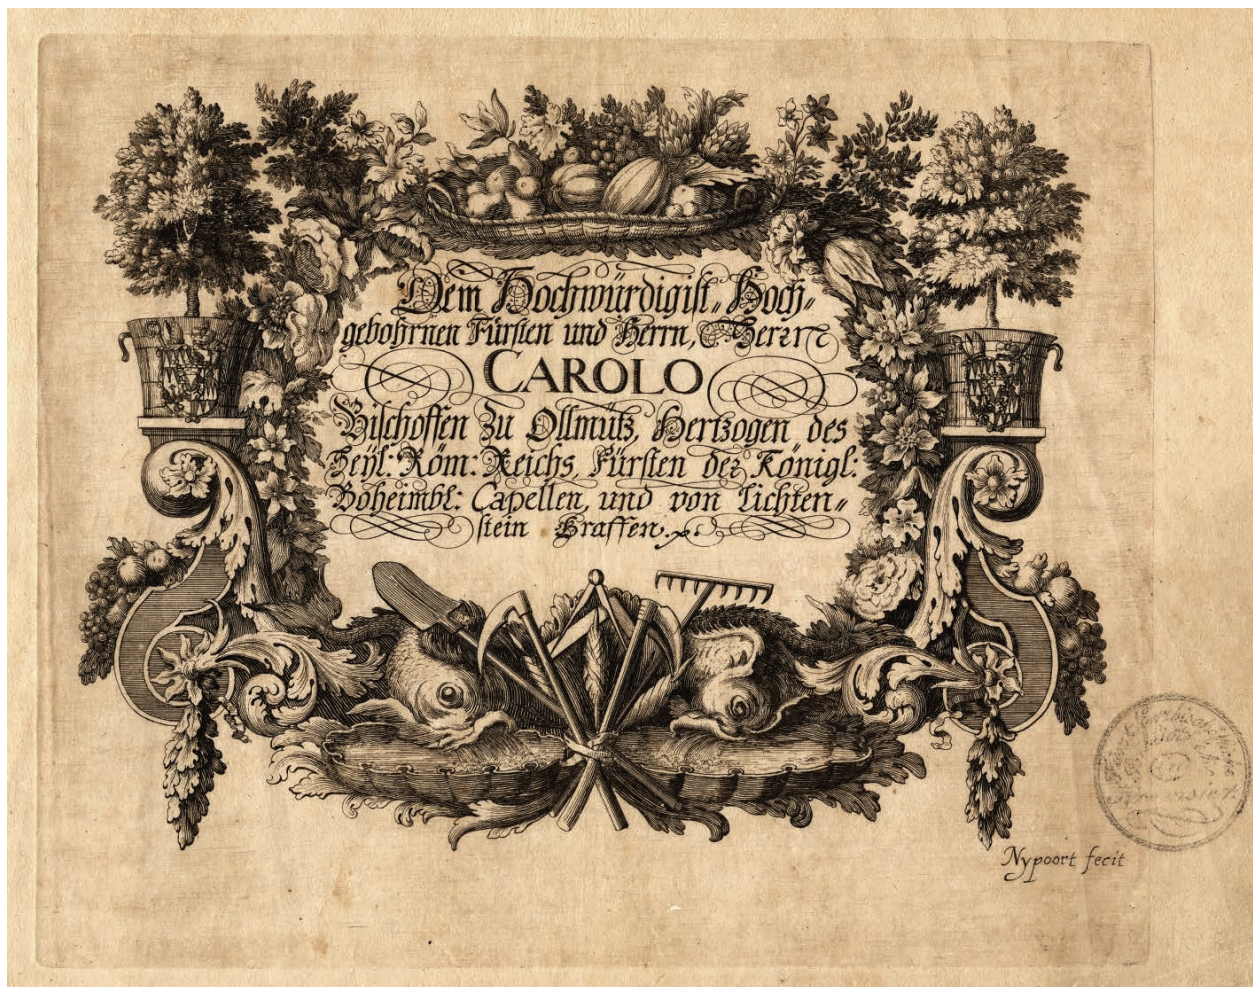 Dem Hochwürdigist„ Hoch„
gebohrnen Fürsten und Herrn, Herrn
CAROLO
Bischoffen zu Ollmütz, Hertzogen des
Heyl: Röm: Reichs, Fürsten der Königl:
Boheimbl: Capellen, und von Lichten„
stein Graffen.
Nypoort fecit